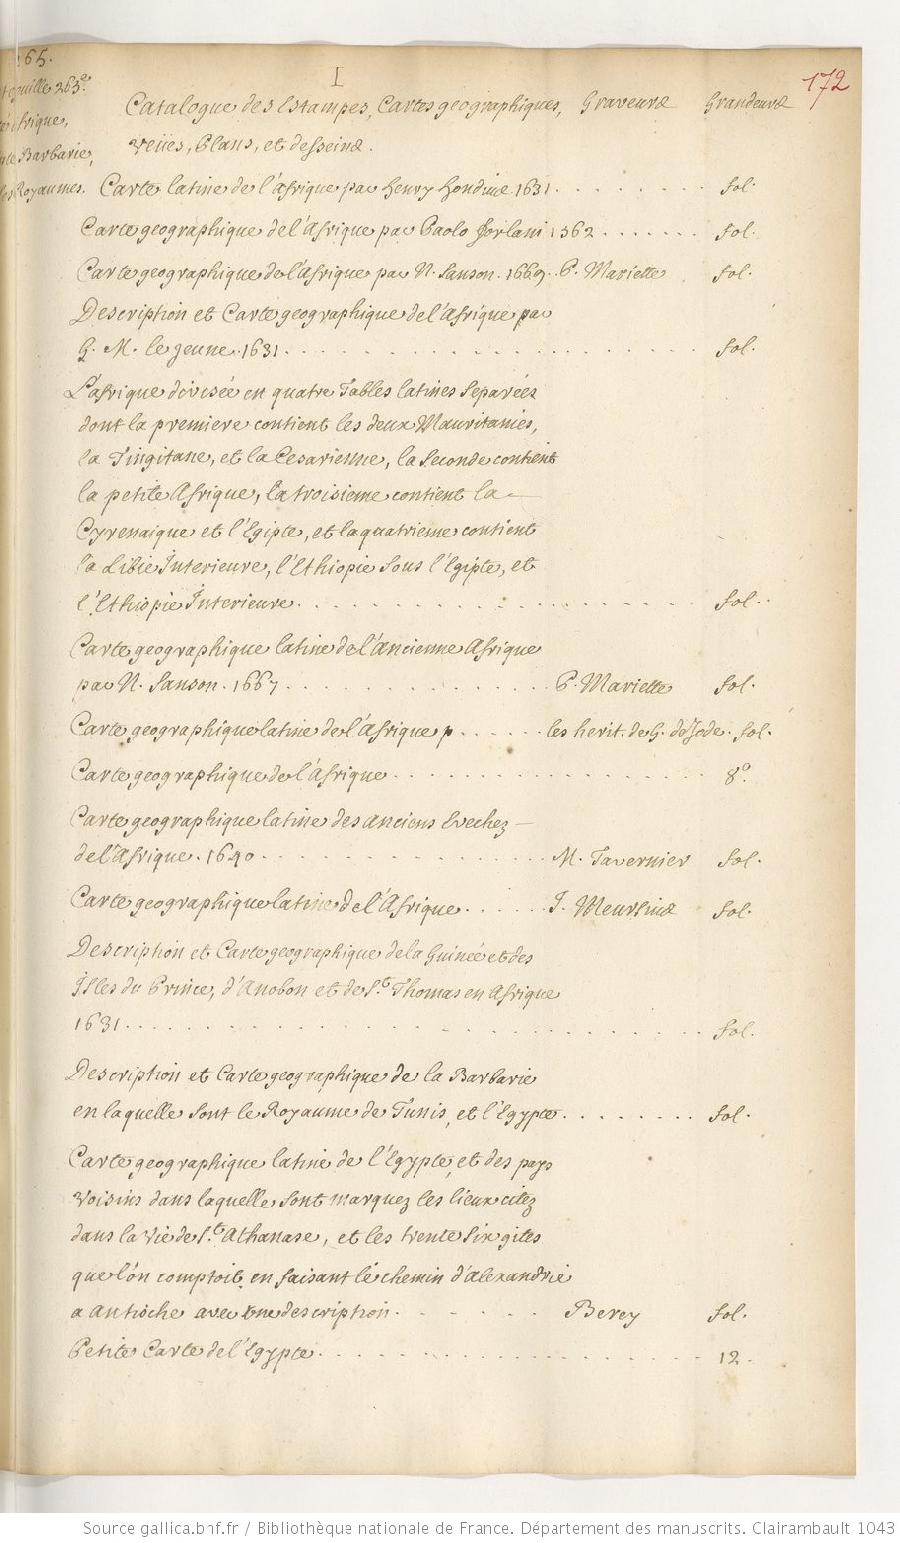 265.
I
172
feuille 265.e
Afrique,
Barbarie,
Royaumes.
Catalogue des Estampes, Cartes geographiques, Graveurs Grandeurs
veües, Plans, et desseins.
Carte latine de l'afrique par henry hondius 1631. fol.
Carte geographique de l'Afrique par Paolo forlani 1562. fol.
Carte geographique de l'Afrique par N. Sanson. 1669. P. Mariette fol.
Description et Carte geographique de l'Afrique par
G. M. le jeune. 1631. fol.
L'afrique divisée en quatre Tables latines separées
dont la premiere contient les deux Mauritanies,
la Tingitane, et la Cesarienne, la seconde contient
la petite Afrique, la troisieme contient la
Cyrenaique et l'Egipte, et la quatrieme contient
la Libie Interieure, l'Ethiopie sous l'Egipte, et
l'Ethiopie Interieure. fol.
Carte geographique latine de l'Ancienne Afrique
par N. Sanson. 1667. P. Mariette fol.
Carte geographique latine de l'Afrique p. les herit. de G. de Jode. fol.
Carte geographique de l'Afrique. 8.o
Carte geographique latine des anciens Evechez
de l'Afrique. 1640. M. Tavernier fol.
Carte geographique latine de l'Afrique. J. Meursius fol.
Description et Carte geographique de la Guinée et des
Isles du Prince, d'Anobon et de S.t Thomas en Afrique
1631. fol.
Description et Carte geographique de la Barbarie
en laquelle sont le Royaume de Tunis, et l'Egypte. fol.
Carte geographique latine de l'Egypte, et des pays
voisins dans laquelle sont marquez les lieux citez
dans la vie de S.t Athanase, et les trente six gites
que l'on comptoit en faisant le chemin d'alexandrie
a antioche avec une description. Berey fol.
Petite Carte de l'Egypte. 12.
Source gallica.bnf.fr / Bibliothèque nationale de France. Département des manuscrits. Clairambault 1043